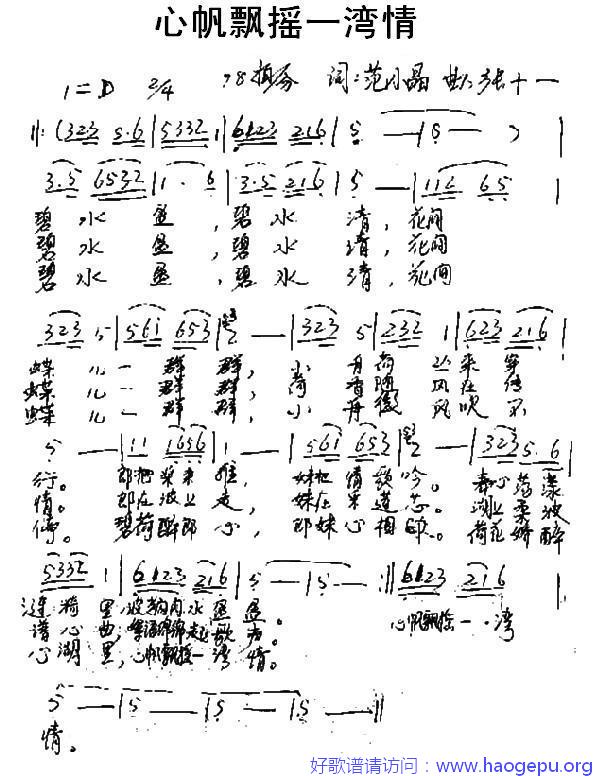 心帆飘摇一湾情
1=D 2/4 词:范月晶 曲:张十一
(323 5.6 5332 1 6123 216 5 — 5 — )
3.5 6532 1. 6 3.5 216 5 — 116 65
碧水盈,碧水清,花间
碧水盈,碧水清,花间
碧水盈,碧水清,花间
323 5 561 653 2 — 323 5 232 1 6123 216
蝶儿一群群,小舟荷丛来穿
蝶儿一群群,荷香随风在传
蝶儿一群群,小舟微风吹不
5 — 11 1656 1 — 561 653 2 — 323 5.6
行。郎把采来,妹把情歌吟。春心荡漾
情。郎在波上走,妹在
停。碧荷醉郎心,郎妹心相映。荷花娇醉
5332 1 6123 216 5 — 5 — 6123 216
涟漪里,水盈盈。心帆飘摇一湾
谱心曲,
心湖里,心帆飘摇一湾情。
5 — 5 — 5 — 5 —
情。
好歌谱请访问：www.haogepu.org